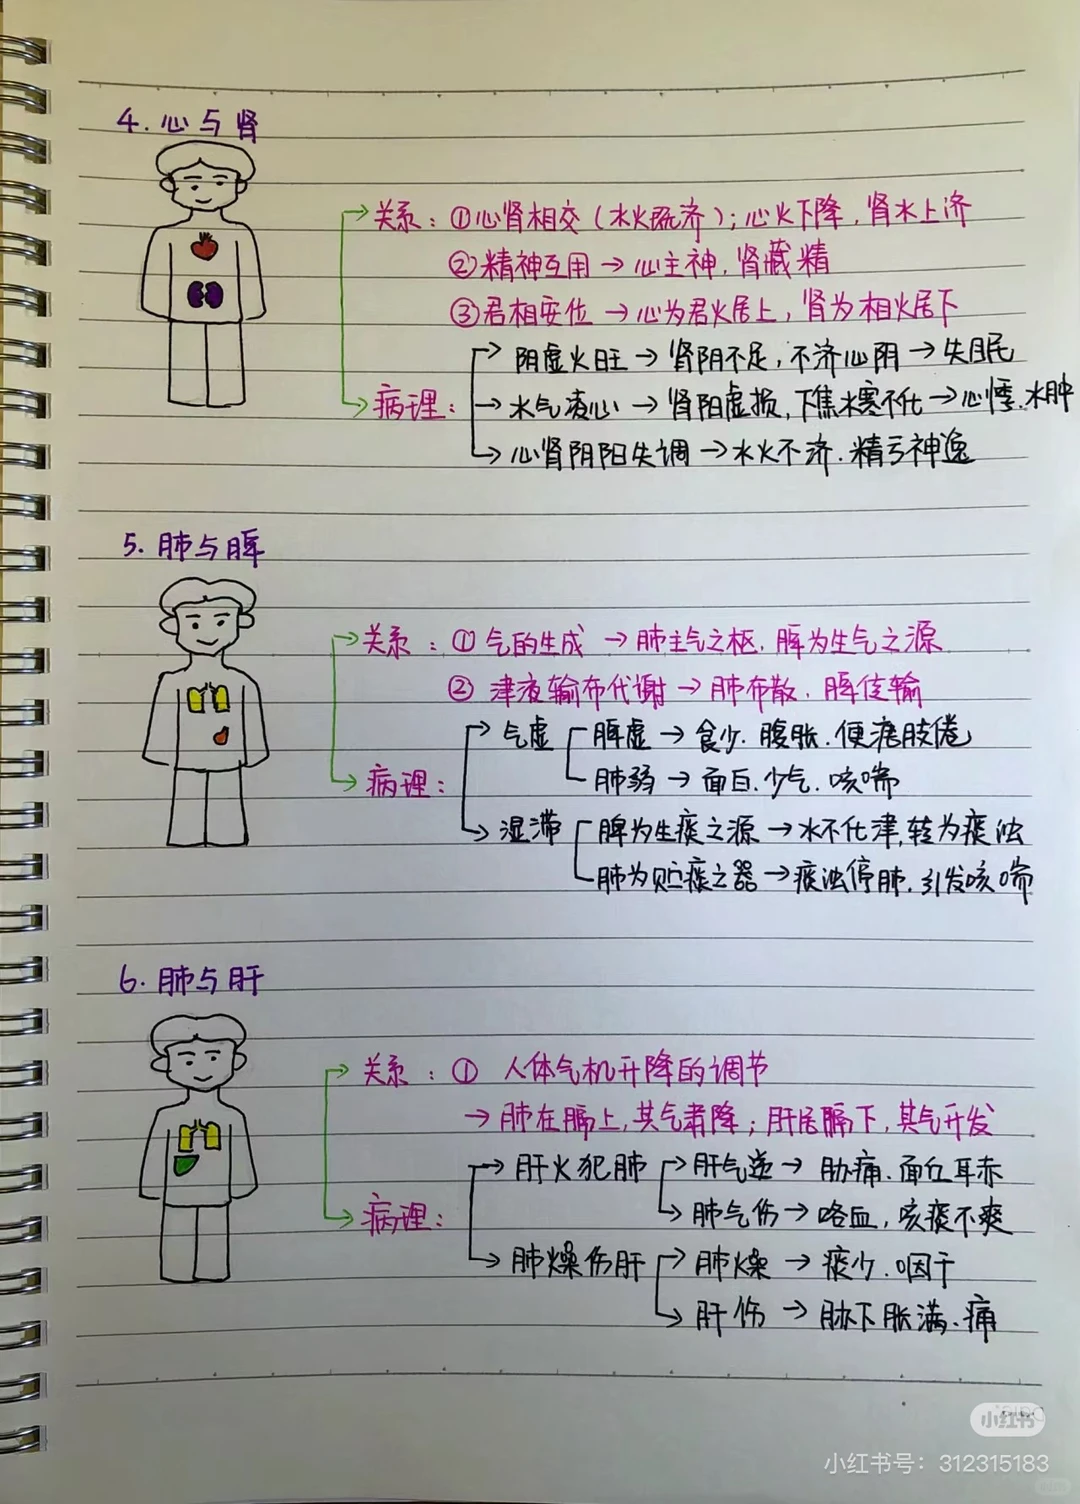 4. 心与肾
关系：①心肾相交（水火既济）；心火下降，肾水上济
②精神互用→心主神，肾藏精
③君相安位→心为君火居上，肾为相火居下
病理：
阴虚火旺→肾阴不足，不济心阴→失眠
水气凌心→肾阳虚损，下焦水寒不化→心悸.水肿
心肾阴阳失调→水火不济.精亏神逸
5. 肺与脾
关系：①气的生成→肺主气之枢.脾为生气之源
②津液输布代谢→肺布散.脾传输
病理：
气虚 脾虚→食少.腹胀.便溏肢倦
肺弱→面白.少气.咳喘
湿滞 脾为生痰之源→水不化津，转为痰浊
肺为贮痰之器→痰浊停肺.引发咳喘
6. 肺与肝
关系：①人体气机升降的调节
→肺在膈上，其气肃降；肝居膈下，其气升发
病理：
肝火犯肺 肝气逆→胁痛.面红耳赤
肺气伤→咯血，咳痰不爽
肺燥伤肝 肺燥→痰少.咽干
肝伤→胁下胀满.痛
小红书
小红书号：312315183